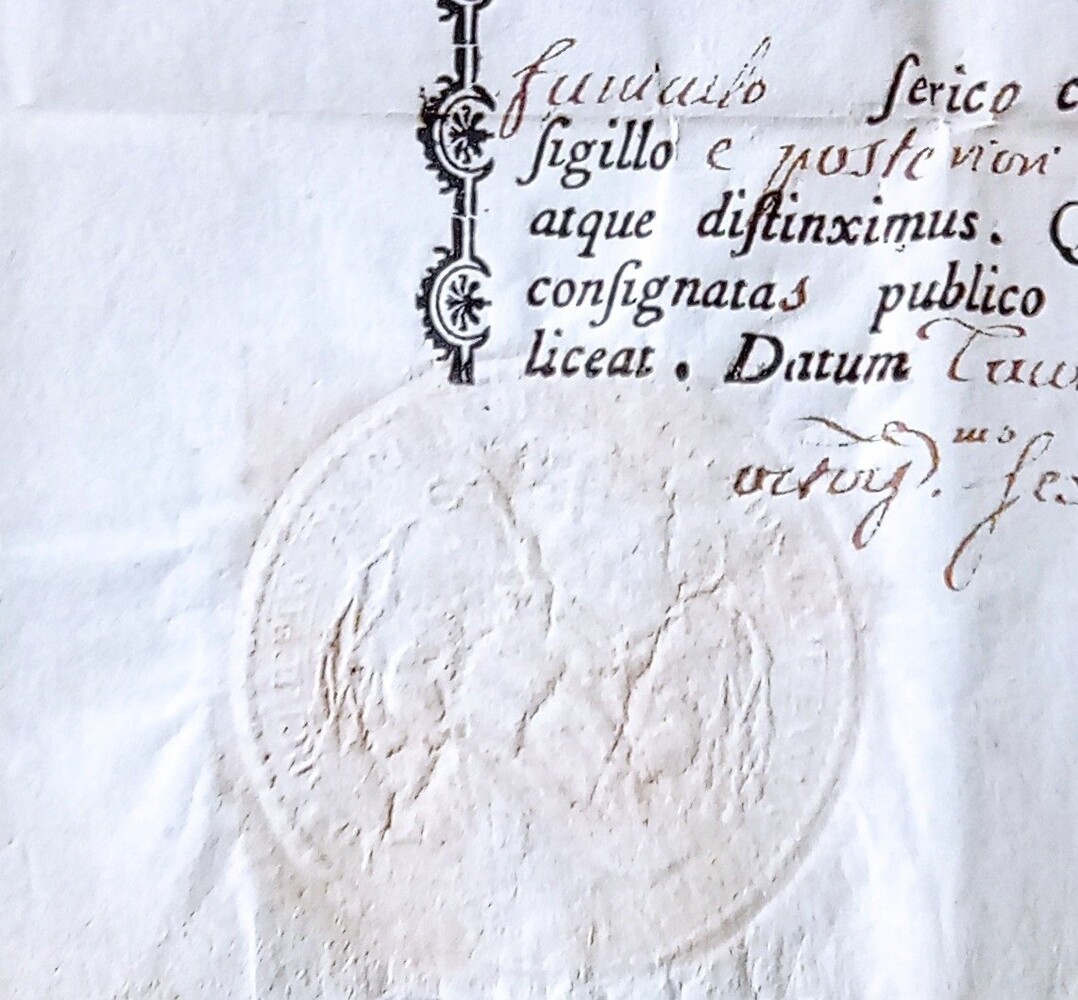 funiculo ſerico c
ſigillo e posteriori
atque diſtinximus. Q
conſignatas publico
liceat. Datum